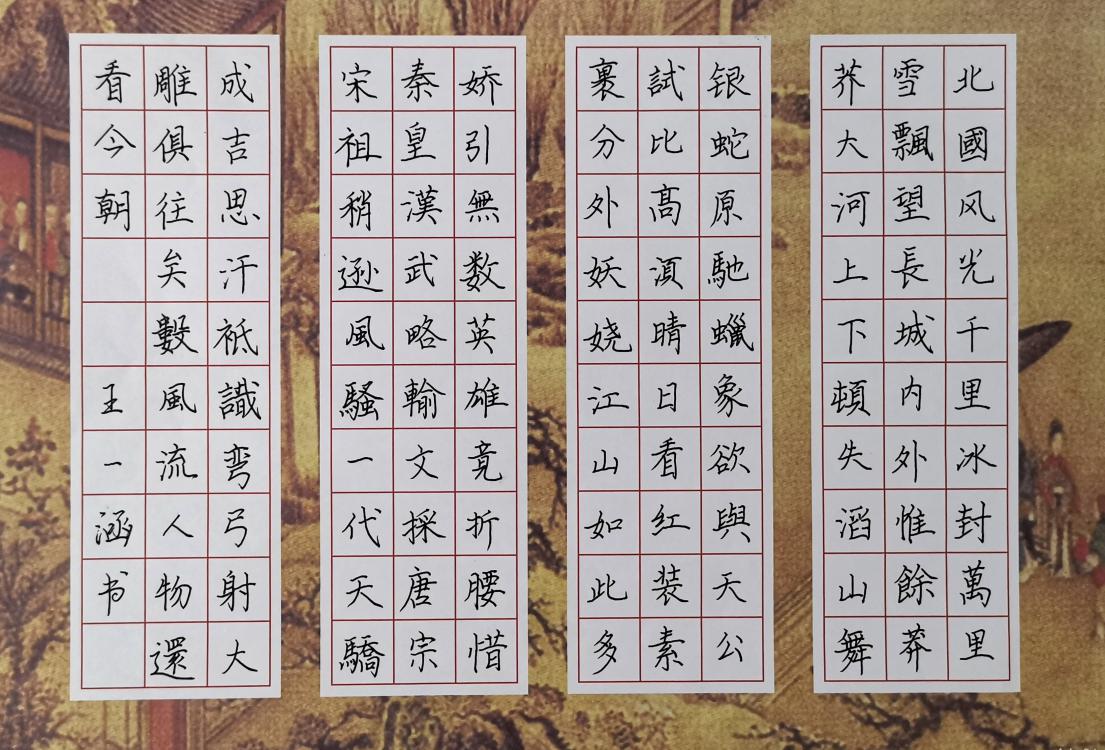 北國风光千里冰封萬里
雪飄望長城内外惟餘莽
莽大河上下頓失滔山舞
银蛇原馳蠟象欲與天公
試比髙湏晴日看红装素
裹分外妖娆江山如此多
娇引無数英雄竟折腰惜
秦皇漢武略輸文採唐宗
宋祖稍逊風騷一代天驕
成吉思汗祗識弯弓射大
雕俱往矣數風流人物還
看今朝 王一涵书